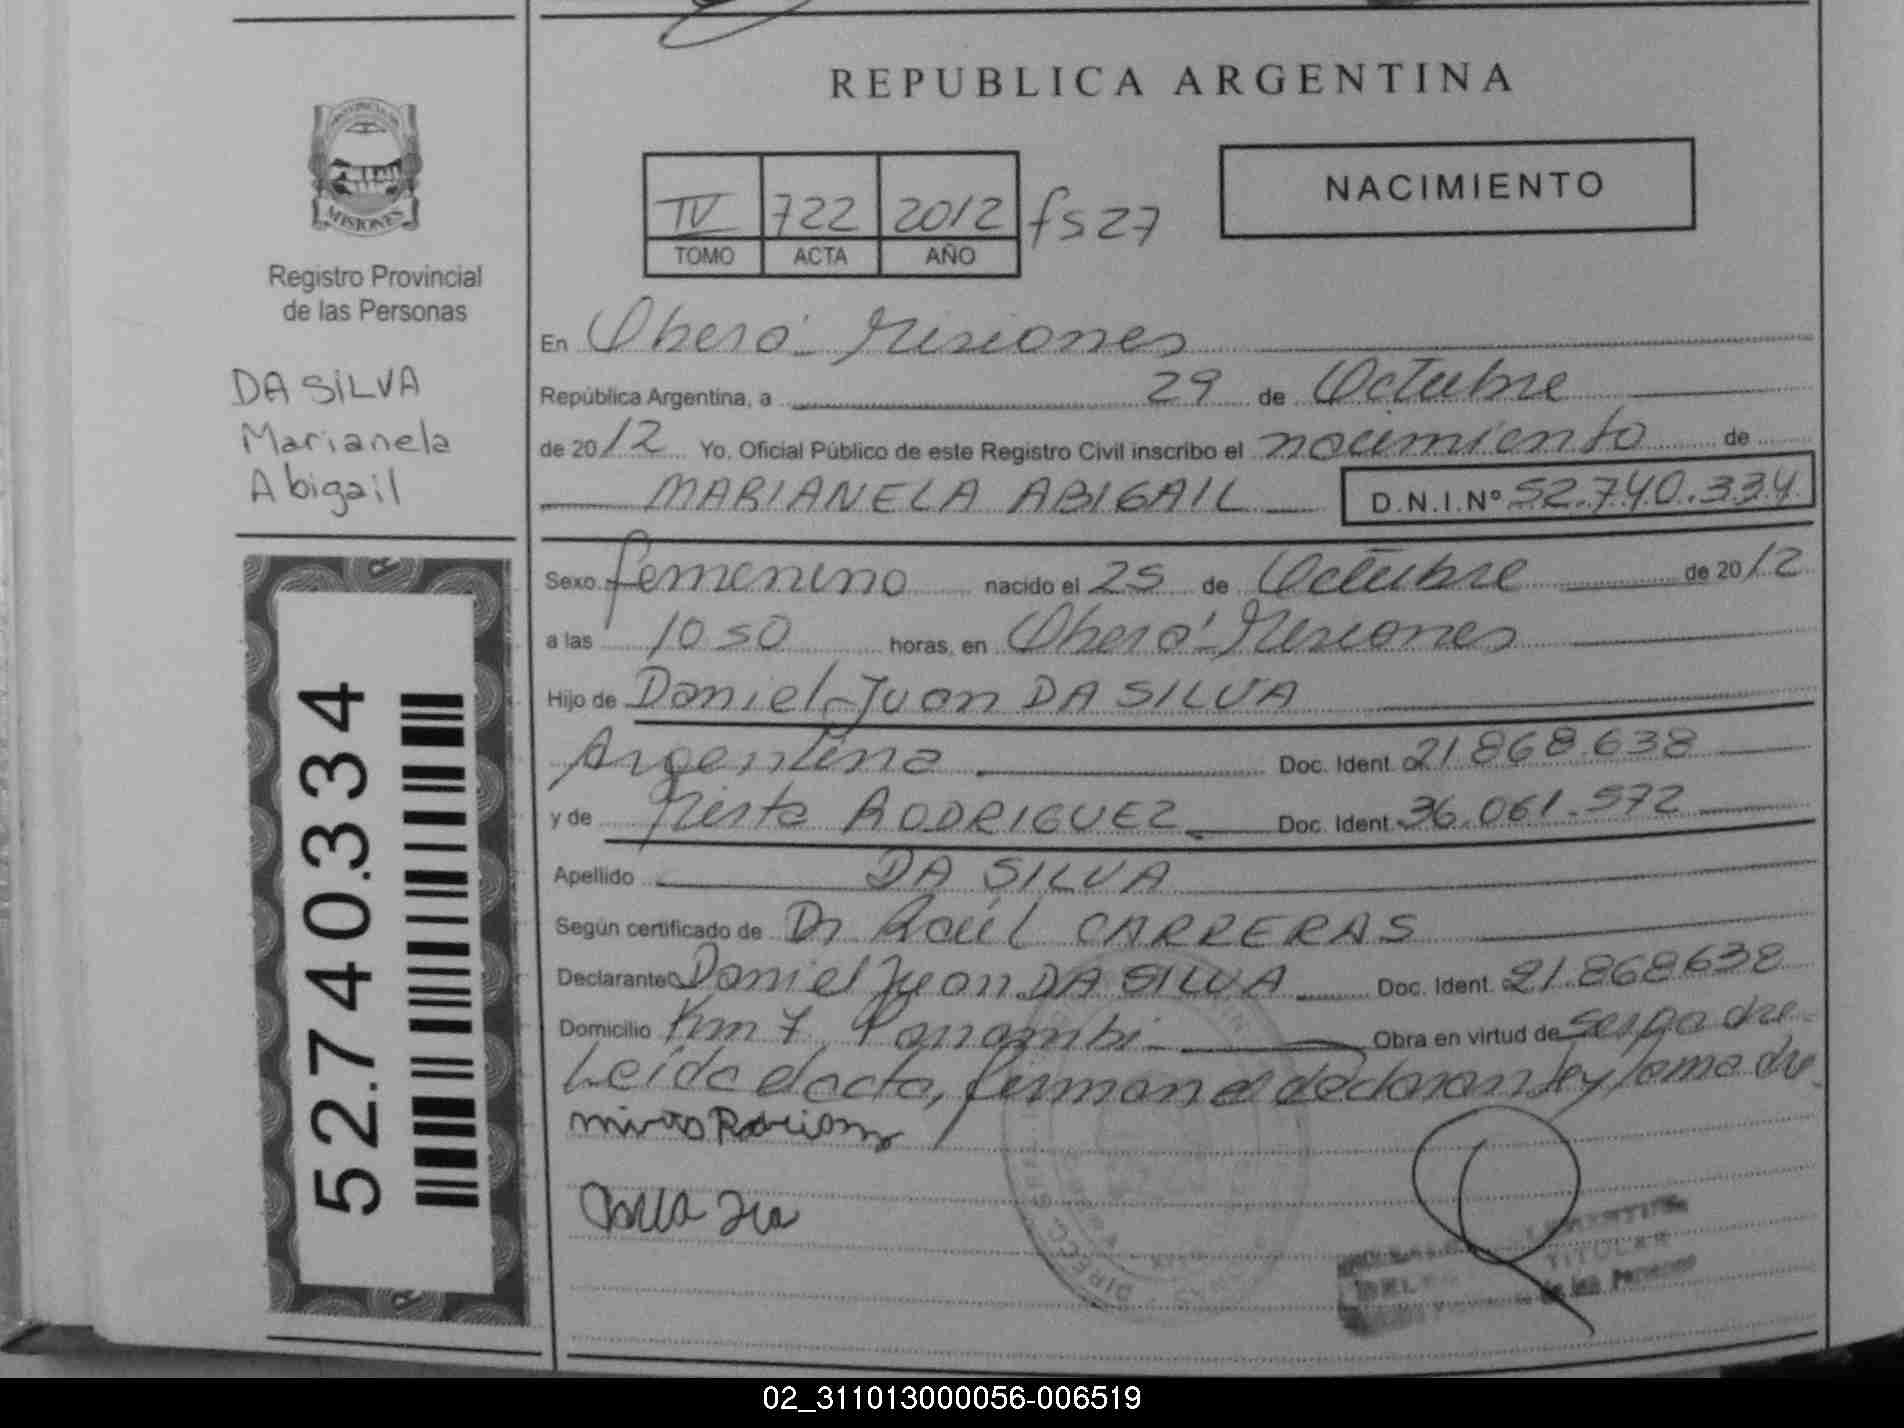 REPUBLICA ARGENTINA
PROVINCIA DE
MISIONES
Registro Provincial
de las Personas
DA SILVA
Marianela
Abigail
52.740.334
IV 722 2012 fs 27
TOMO ACTA AÑO
NACIMIENTO
En Oberá - Misiones
República Argentina, a 29 de Octubre
de 2012 Yo, Oficial Público de este Registro Civil inscribo el nacimiento de
MARIANELA ABIGAIL D.N.I.Nº 52.740.334
Sexo femenino nacido el 25 de Octubre de 2012
a las 10 50 horas, en Oberá - Misiones
Hijo de Daniel Juan DA SILVA
Argentina Doc. Ident. 21.868.638
y de Mirta RODRIGUEZ Doc. Ident. 36.061.572
Apellido DA SILVA
Según certificado de Dr Raúl CARRERAS
Declarante Daniel Juan DA SILVA Doc. Ident. 21.868638
Domicilio Km 7 Panambi Obra en virtud de ser padre
Leída el acta, firman el declarante y la madre
TITULAR
de las Personas
02_311013000056-006519